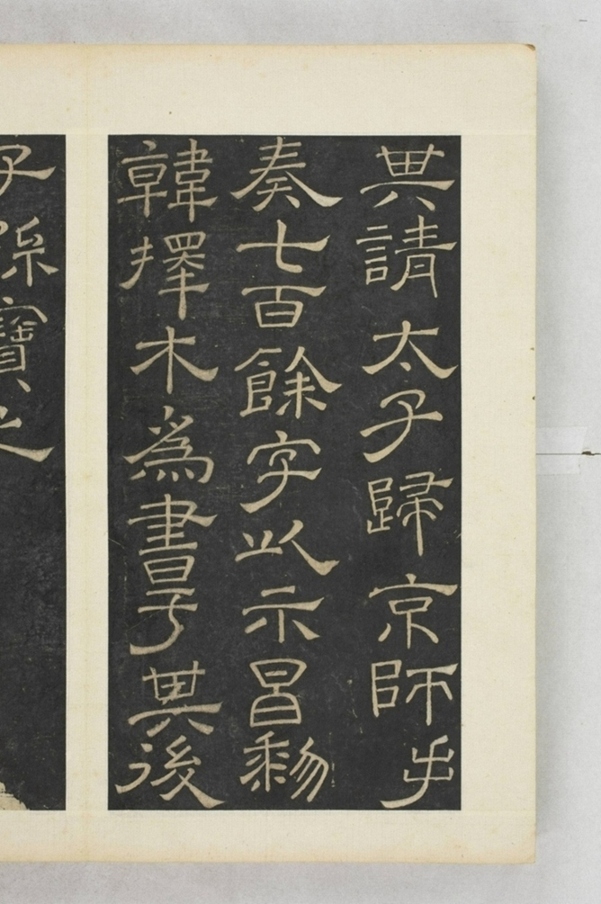 其請太子歸京師手
奏七百餘字以示昌黎
韓擇木爲書于其後
子孫寶之